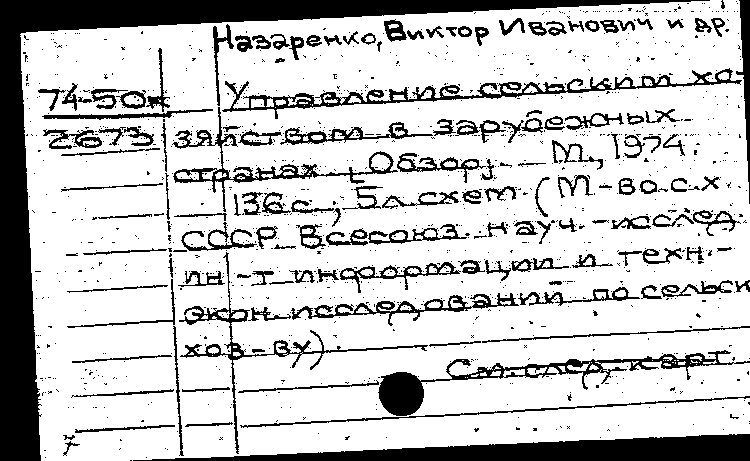 Назаренко, Виктор Иванович и др.
74-50ж Управление сельским хо-
2673 зяйством в зарубежных
странах. [Обзор]. М., 1974.
136 с.; 5 л. схем. (М-во с. х.
СССР. Всесоюз. науч.-исслед.
ин-т информации и техн.-
экон. исследований по сельск.
хоз-ву).
См. след. карт.
7